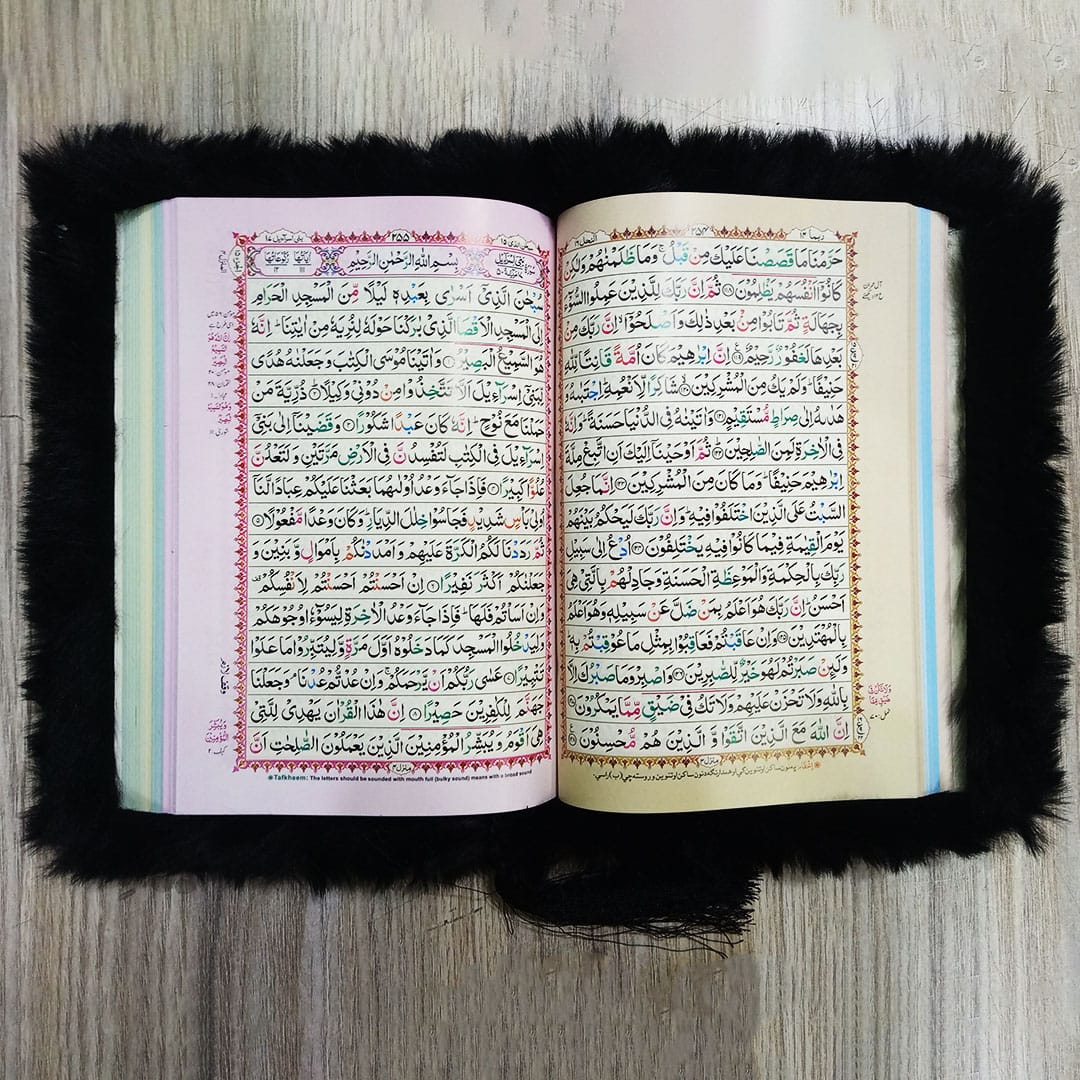 ربما ۱۴
۲۵۴
النحل ۱۶
حَرَّمْنَا مَا قَصَصْنَا عَلَيْكَ مِنْ قَبْلُ ۚ وَمَا ظَلَمْنٰهُمْ وَلٰكِنْ
كَانُوْٓا اَنْفُسَهُمْ يَظْلِمُوْنَ ۱۱۸ ثُمَّ اِنَّ رَبَّكَ لِلَّذِيْنَ عَمِلُوا السُّوْٓءَ
بِجَهَالَةٍ ثُمَّ تَابُوْا مِنْۢ بَعْدِ ذٰلِكَ وَاَصْلَحُوْٓا ۙ اِنَّ رَبَّكَ مِنْۢ
بَعْدِهَا لَغَفُوْرٌ رَّحِيْمٌ ۱۱۹ اِنَّ اِبْرٰهِيْمَ كَانَ اُمَّةً قَانِتًا لِّلّٰهِ
حَنِيْفًا ؕ وَلَمْ يَكُ مِنَ الْمُشْرِكِيْنَ ۱۲۰ شَاكِرًا لِّاَنْعُمِهٖ ؕ اِجْتَبٰىهُ
وَهَدٰىهُ اِلٰى صِرَاطٍ مُّسْتَقِيْمٍ ۱۲۱ وَاٰتَيْنٰهُ فِى الدُّنْيَا حَسَنَةً ؕ وَاِنَّهٗ
فِى الْاٰخِرَةِ لَمِنَ الصّٰلِحِيْنَ ۱۲۲ ثُمَّ اَوْحَيْنَآ اِلَيْكَ اَنِ اتَّبِعْ مِلَّةَ
اِبْرٰهِيْمَ حَنِيْفًا ؕ وَمَا كَانَ مِنَ الْمُشْرِكِيْنَ ۱۲۳ اِنَّمَا جُعِلَ
السَّبْتُ عَلَى الَّذِيْنَ اخْتَلَفُوْا فِيْهِ ؕ وَاِنَّ رَبَّكَ لَيَحْكُمُ بَيْنَهُمْ
يَوْمَ الْقِيٰمَةِ فِيْمَا كَانُوْا فِيْهِ يَخْتَلِفُوْنَ ۱۲۴ اُدْعُ اِلٰى سَبِيْلِ
رَبِّكَ بِالْحِكْمَةِ وَالْمَوْعِظَةِ الْحَسَنَةِ وَجَادِلْهُمْ بِالَّتِىْ هِىَ
اَحْسَنُ ؕ اِنَّ رَبَّكَ هُوَ اَعْلَمُ بِمَنْ ضَلَّ عَنْ سَبِيْلِهٖ وَهُوَ اَعْلَمُ
بِالْمُهْتَدِيْنَ ۱۲۵ وَاِنْ عَاقَبْتُمْ فَعَاقِبُوْا بِمِثْلِ مَا عُوْقِبْتُمْ بِهٖ ؕ
وَلَئِنْ صَبَرْتُمْ لَهُوَ خَيْرٌ لِّلصّٰبِرِيْنَ ۱۲۶ وَاصْبِرْ وَمَا صَبْرُكَ اِلَّا
بِاللّٰهِ وَلَا تَحْزَنْ عَلَيْهِمْ وَلَا تَكُ فِىْ ضَيْقٍ مِّمَّا يَمْكُرُوْنَ ۱۲۷
اِنَّ اللّٰهَ مَعَ الَّذِيْنَ اتَّقَوْا وَّ الَّذِيْنَ هُمْ مُّحْسِنُوْنَ ۱۲۸
منزل ۳
سبحن الذى ۱۵
۲۵۵
بنى اسراءيل ۱۷
بِسْمِ اللّٰهِ الرَّحْمٰنِ الرَّحِيْمِ
سُبْحٰنَ الَّذِىْٓ اَسْرٰى بِعَبْدِهٖ لَيْلًا مِّنَ الْمَسْجِدِ الْحَرَامِ
اِلَى الْمَسْجِدِ الْاَقْصَا الَّذِىْ بٰرَكْنَا حَوْلَهٗ لِنُرِيَهٗ مِنْ اٰيٰتِنَا ؕ اِنَّهٗ
هُوَ السَّمِيْعُ الْبَصِيْرُ ۱ وَاٰتَيْنَا مُوْسَى الْكِتٰبَ وَجَعَلْنٰهُ هُدًى
لِّبَنِىْٓ اِسْرَآءِيْلَ اَلَّا تَتَّخِذُوْا مِنْ دُوْنِىْ وَكِيْلًا ۲ ذُرِّيَّةَ مَنْ
حَمَلْنَا مَعَ نُوْحٍ ؕ اِنَّهٗ كَانَ عَبْدًا شَكُوْرًا ۳ وَقَضَيْنَآ اِلٰى بَنِىْٓ
اِسْرَآءِيْلَ فِى الْكِتٰبِ لَتُفْسِدُنَّ فِى الْاَرْضِ مَرَّتَيْنِ وَلَتَعْلُنَّ
عُلُوًّا كَبِيْرًا ۴ فَاِذَا جَآءَ وَعْدُ اُوْلٰىهُمَا بَعَثْنَا عَلَيْكُمْ عِبَادًا لَّنَآ
اُولِىْ بَاْسٍ شَدِيْدٍ فَجَاسُوْا خِلٰلَ الدِّيَارِ ؕ وَكَانَ وَعْدًا مَّفْعُوْلًا ۵
ثُمَّ رَدَدْنَا لَكُمُ الْكَرَّةَ عَلَيْهِمْ وَاَمْدَدْنٰكُمْ بِاَمْوَالٍ وَّ بَنِيْنَ وَ
جَعَلْنٰكُمْ اَكْثَرَ نَفِيْرًا ۶ اِنْ اَحْسَنْتُمْ اَحْسَنْتُمْ لِاَنْفُسِكُمْ
وَاِنْ اَسَاْتُمْ فَلَهَا ؕ فَاِذَا جَآءَ وَعْدُ الْاٰخِرَةِ لِيَسُوْٓءٗا وُجُوْهَكُمْ
وَلِيَدْخُلُوا الْمَسْجِدَ كَمَا دَخَلُوْهُ اَوَّلَ مَرَّةٍ وَّلِيُتَبِّرُوْا مَا عَلَوْا
تَتْبِيْرًا ۷ عَسٰى رَبُّكُمْ اَنْ يَّرْحَمَكُمْ ۚ وَاِنْ عُدْتُّمْ عُدْنَا ۘ وَجَعَلْنَا
جَهَنَّمَ لِلْكٰفِرِيْنَ حَصِيْرًا ۸ اِنَّ هٰذَا الْقُرْاٰنَ يَهْدِىْ لِلَّتِىْ
هِىَ اَقْوَمُ وَ يُبَشِّرُ الْمُؤْمِنِيْنَ الَّذِيْنَ يَعْمَلُوْنَ الصّٰلِحٰتِ اَنَّ
منزل ۴
Tafkheem: The letters should be sounded with mouth full (bulky sound) means with a broad sound